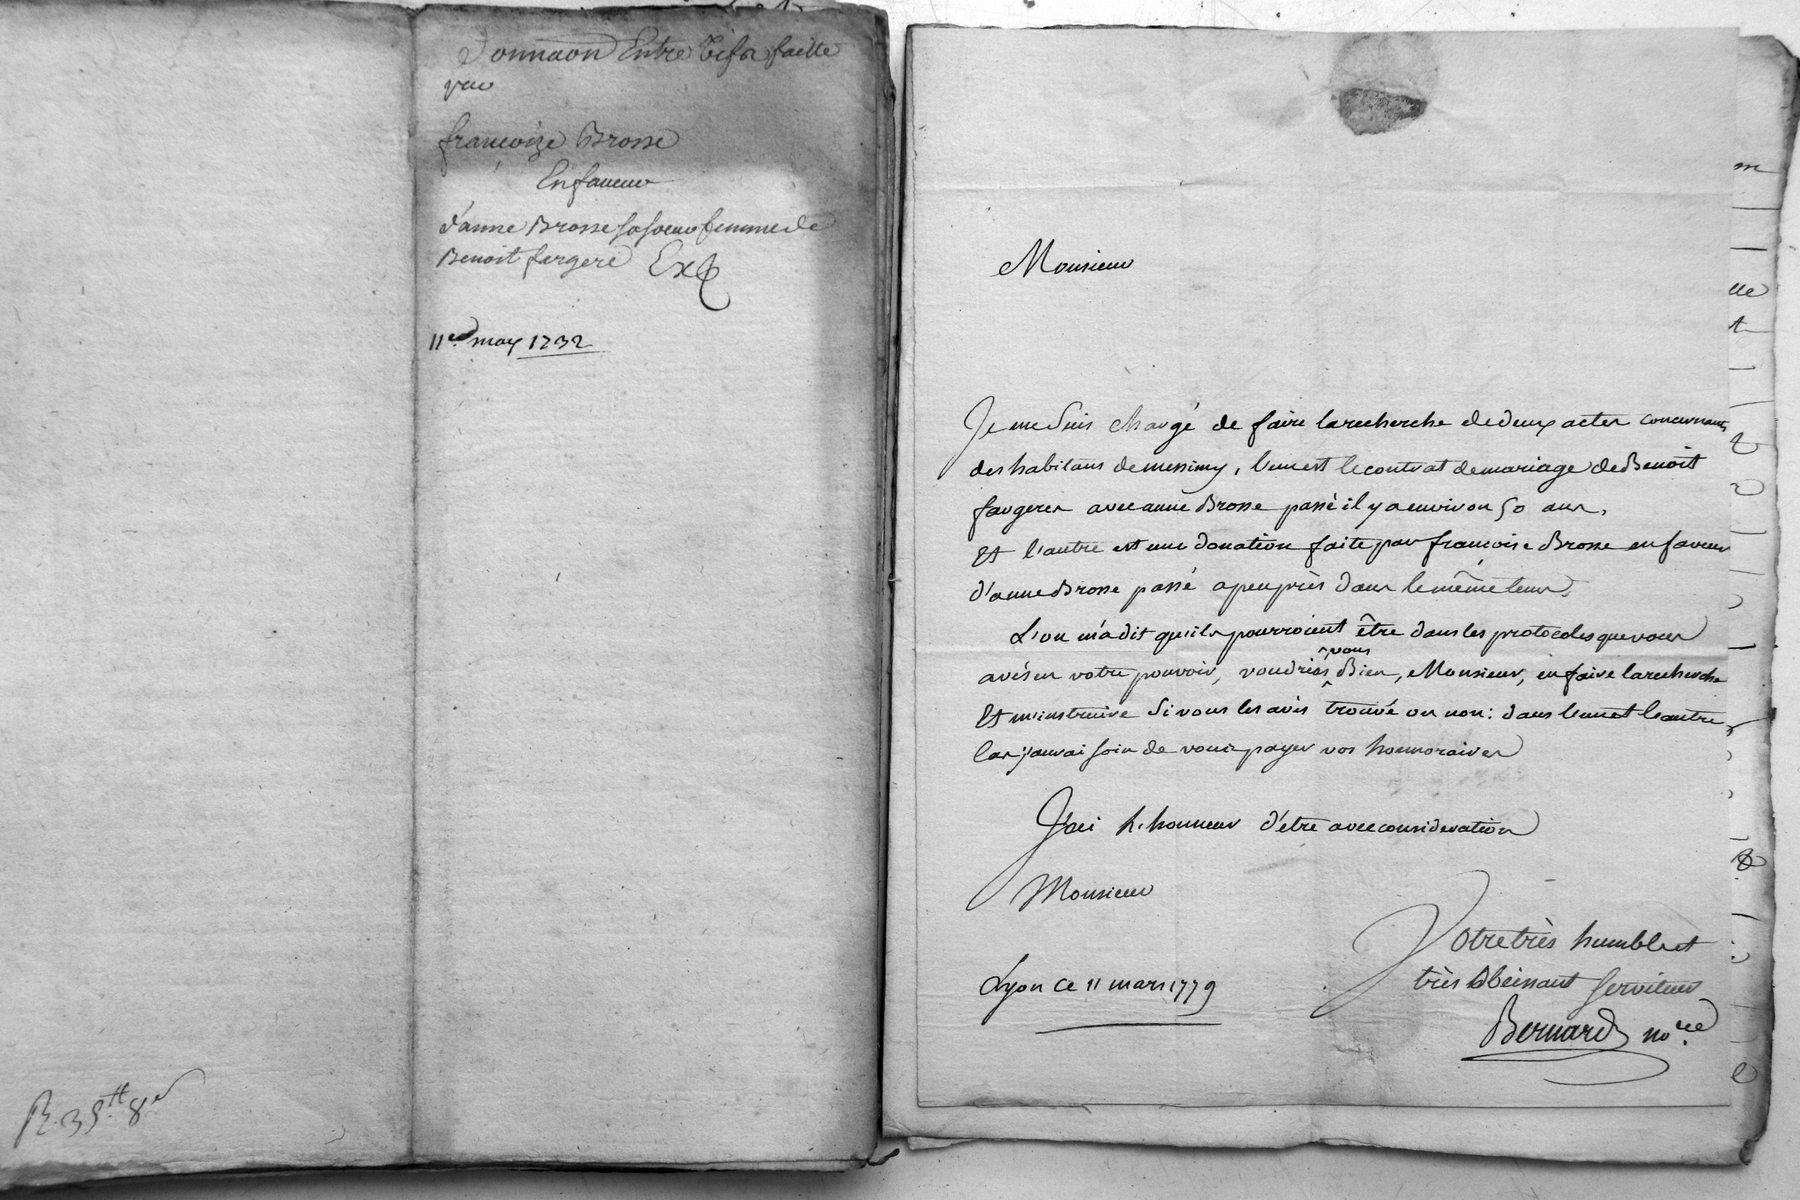 Donnaon Entre vifs faitte
par
françoize Brosse
En faveur
d'anne Brosse sa soeur femme de
Benoit fargere Exp
11e may 1732
R 35tt 8s
Monsieur
Je me suis chargé de faire la recherche de deux actes concernants
des habitans de messimy, l'un est le contrat de mariage de Benoit
faugeres avec anne Brosse passé il y a environ 50 ans,
Et l'autre est une donation faite par francoise Brosse en faveur
d'anne Brosse passé a peu près dans le même tems.
L'on m'a dit qu'ils pourroient être dans les protocoles que vous
avés en votre pouvoir, voudriés vous Bien, Monsieur, en faire la recherche
Et m'instruire si vous les avés trouvé ou non: dans l'un et l'autre
Cas j'aurai soin de vous payer vos honnoraires
J'ai l'honneur d'être avec consideration
Monsieur
Votre très humble et
très obéissant serviteur
Lyon ce 11 mars 1779
Bernard nore